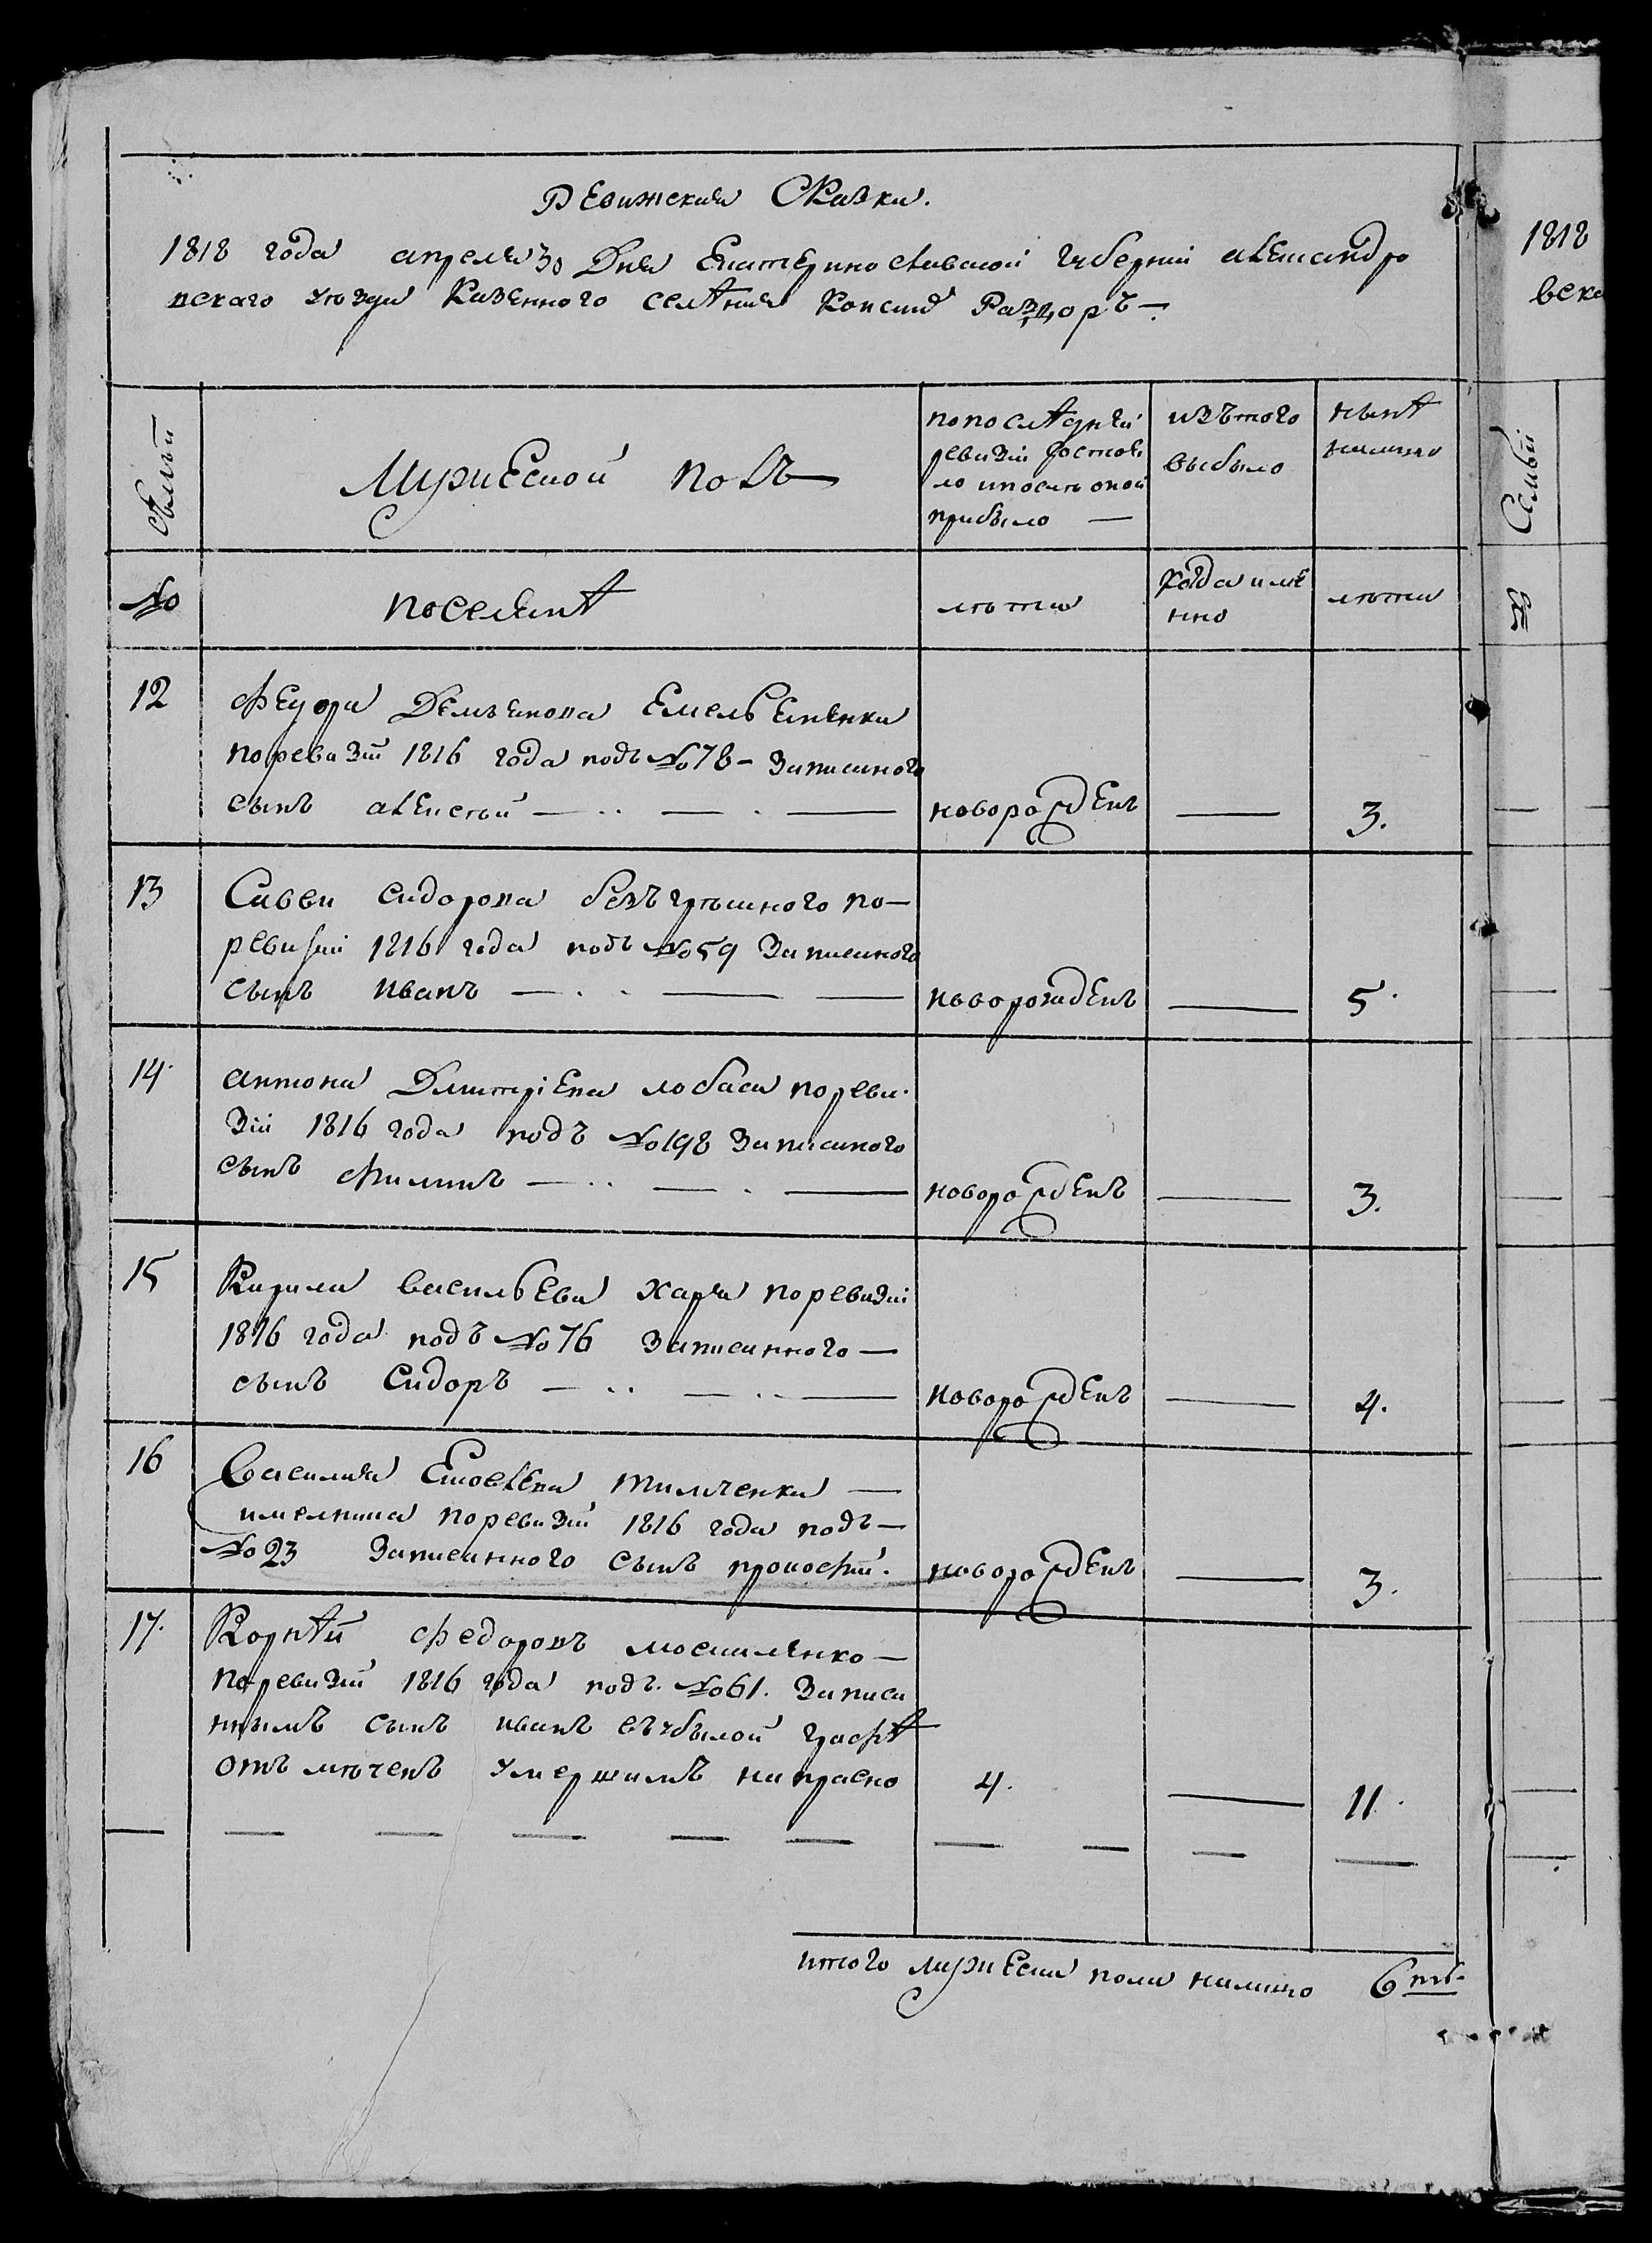 Ревижская Сказка.
1818 года апреля 30 Дня Екатеринославской губерніи александро
вскаго уезда Казенного селѣния Конских Раздоръ —
Семьи
Мужеской полъ
попослѣдней
ревизіи состоя
ло ипосле оной
прибыло —
изъ того
выбыло
нынѣ
налицо
№
поселянѣ
лета
Когда име
нно
лета
12
Федора Демьянова Емельяненка
поревизіи 1816 года подъ №78 - Записаного
сынъ алексѣй
новорожденъ
3.
13
Савви Сидорова безъгрешного по—
ревизіи 1816 года подъ №59 Записаного
сынъ иванъ
новорожденъ
5.
14.
антона Дмитріева лобаса пореви
зіи 1816 года подъ №198 Записаного
сынъ Филипъ
новорожденъ
3.
15
Кирила васильева харя поревизіи
1816 года подъ №76 Записанного —
сынъ Сидоръ
новорожденъ
4.
16
василия тимченка —
поревизіи 1816 года подъ —
№23 Записанного сынъ прокофій.
новорожденъ
3.
17.
Корнѣй Федоровъ москаленко —
поревизіи 1816 года подъ №61. Записа
ннымъ сынъ иванъ въ убылой графѣ
отъмеченъ умершимъ напрасно
4.
11.
итого мужеска пола налицо 6
1818
вска
Семьи
№